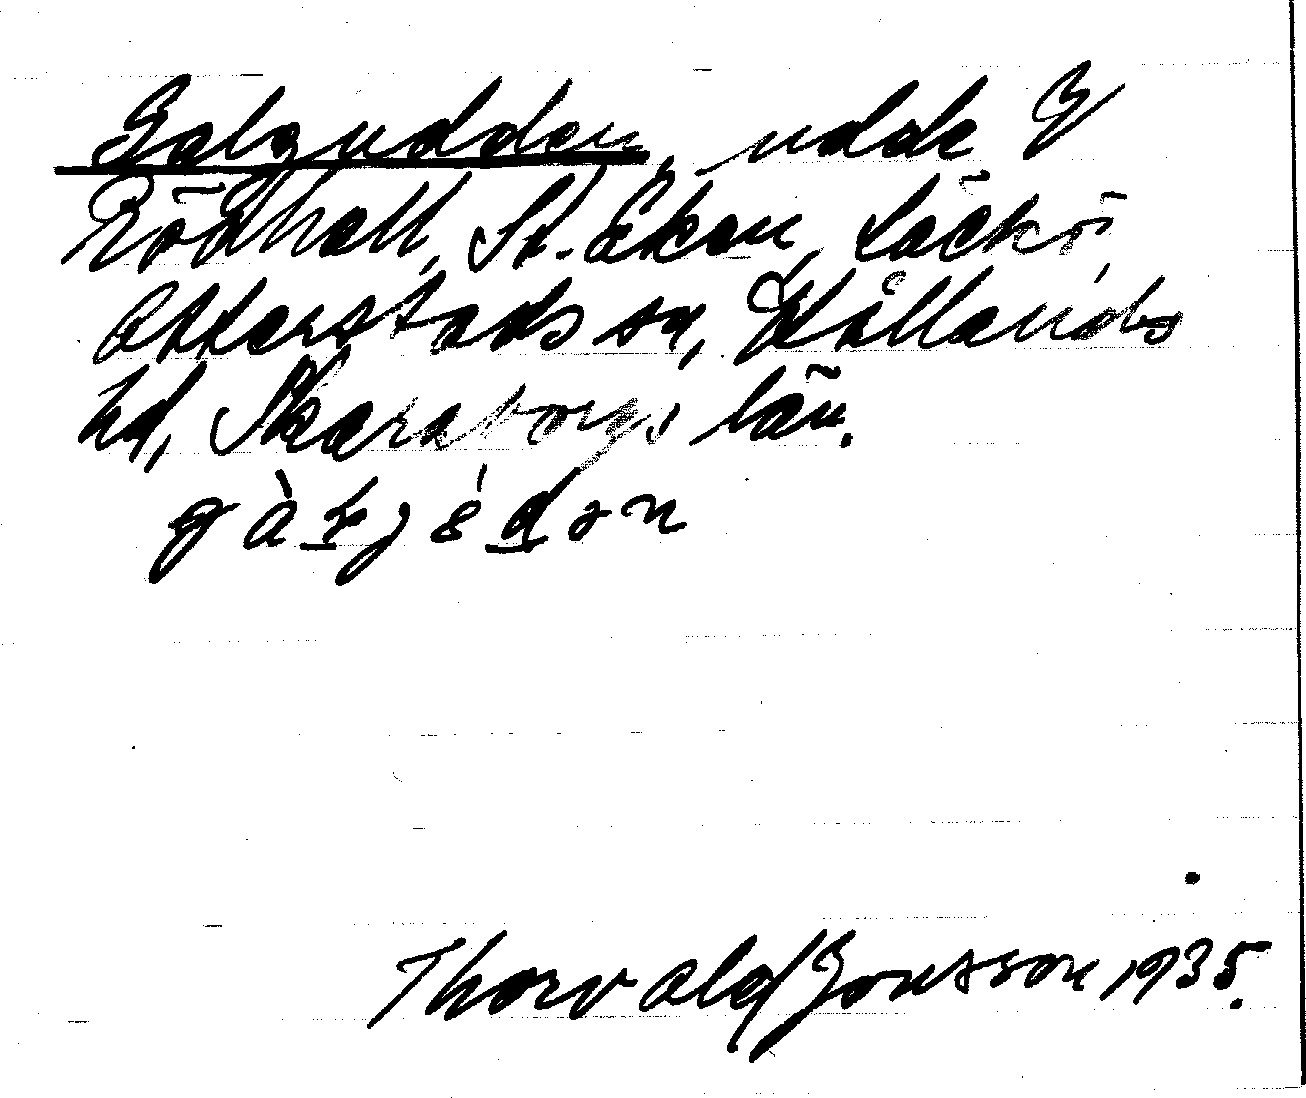 Galgudden, udde I
Rödhall, St. Eken, Läckö,
Otterstads sn, Kållands
hd, Skaraborgs län.
Thorvald Jonsson 1935.